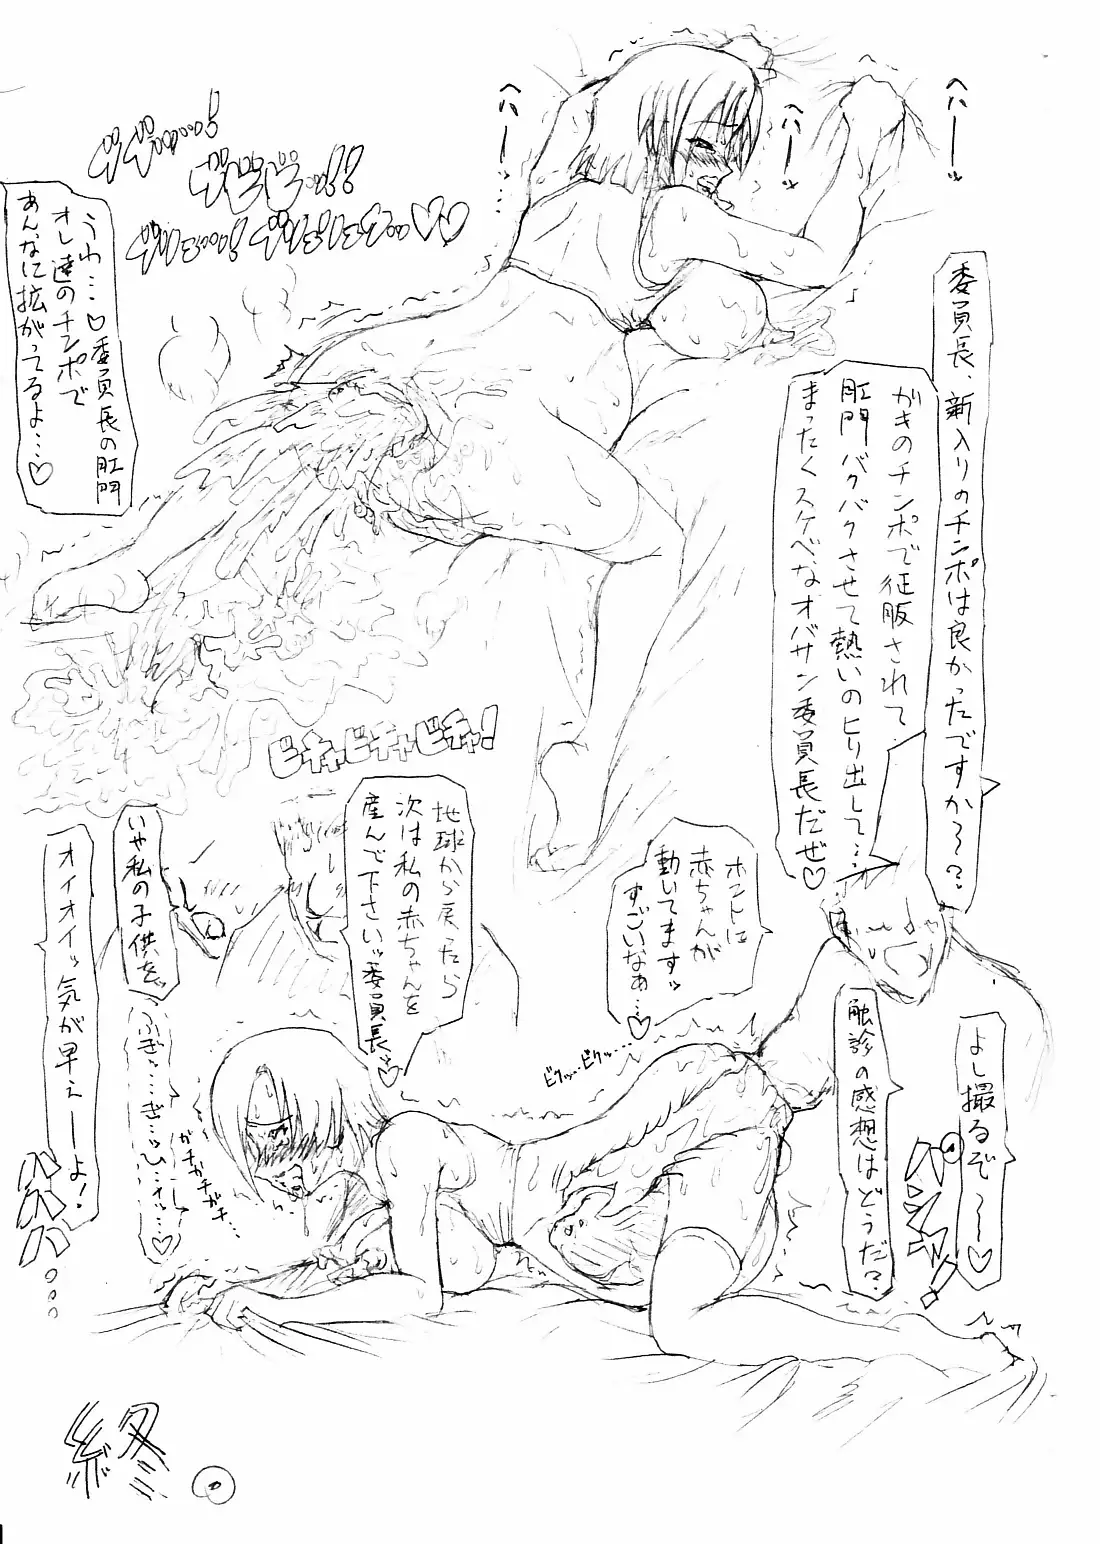 ヘハーーッ
委員長、新入りのチンポは良かったですか～？
がきのチンポで征服されて
肛門バクバクさせて熱いのヒり出して…
まったくスケベなオバサン委員長だぜ♡
ヘハーッ
ヘハーーッ
うわ…♡委員長の肛門
オレ達のチンポで
あんなに拡がってるよ…♡
ビチャビチャビチャ！
よし撮るぞ～～♡
触診の感想はどうだ？
ホントに
赤ちゃんが
動いてますッ
すごいなぁ…♡
ビクッ…ビクッ…
地球から戻ったら
次は私の赤ちゃんを
産んで下さいッ委員長ッ♡
いや私の子供をッ
オイオイッ気が早えーーよ！
ハハハ
ガチガチガチ…
終